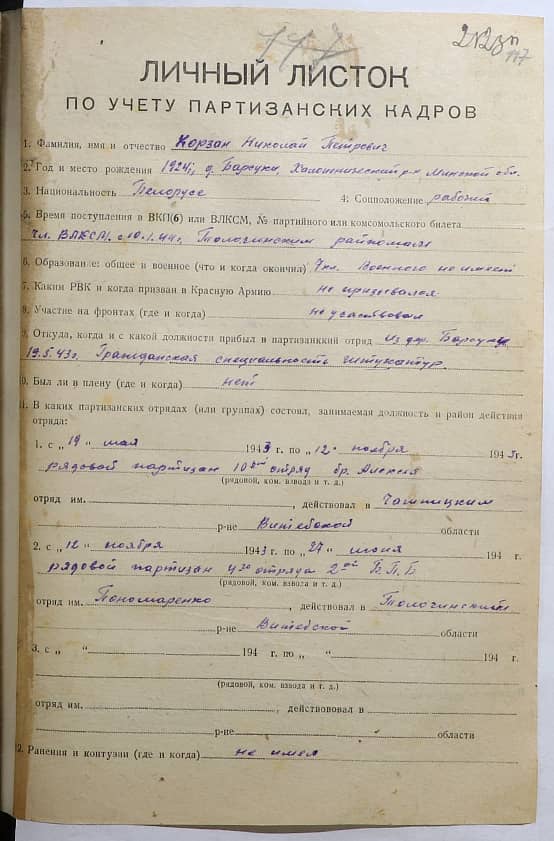 117
ЛИЧНЫЙ ЛИСТОК
ПО УЧЕТУ ПАРТИЗАНСКИХ КАДРОВ
1. Фамилия, имя и отчество Корзан Николай Петрович
2. Год и место рождения 1924г, д. Барсуки, Халопенический р-н, Минской обл.
3. Национальность Белорусс 4: Соцположение рабочий
5. Время поступления в ВКП(б) или ВЛКСМ, № партийного или комсомольского билета
чл. ВЛКСМ с 10.1.44г, Толочинским райкомом
6. Образование: общее и военное (что и когда окончил) 7кл. Военного не имеет
7. Каким РВК и когда призван в Красную Армию не призывался
8. Участие на фронтах (где и когда) не участвовал
9. Откуда, когда и с какой должности прибыл в партизанский отряд из дер. Барсуки
19.5.43г. Гражданская специальность штукатур.
10. Был ли в плену (где и когда) нет
11. В каких партизанских отрядах (или группах) состоял, занимаемая должность и район действия
отряда:
1. с „19“ мая 1943 г. по „12“ ноября 1943г.
рядовой партизан 10 отряд бр. Алексея
(рядовой, ком. взвода и т. д.)
отряд им. , действовал в Чашницким
р-не Витебской области
2. с „12“ ноября 1943 г. по „27“ июня 194 г.
рядовой партизан 4го отряда 2ой Б.П.Б
(рядовой, ком. взвода и т. д.)
отряд им. Пономаренко , действовал в Толочинский
р-не Витебской области
3. с „ “ 194 г. по „ “ 194 г.
(рядовой, ком. взвода и т. д.)
отряд им. , действовал в
р-не области
12. Ранения и контузии (где и когда) не имел